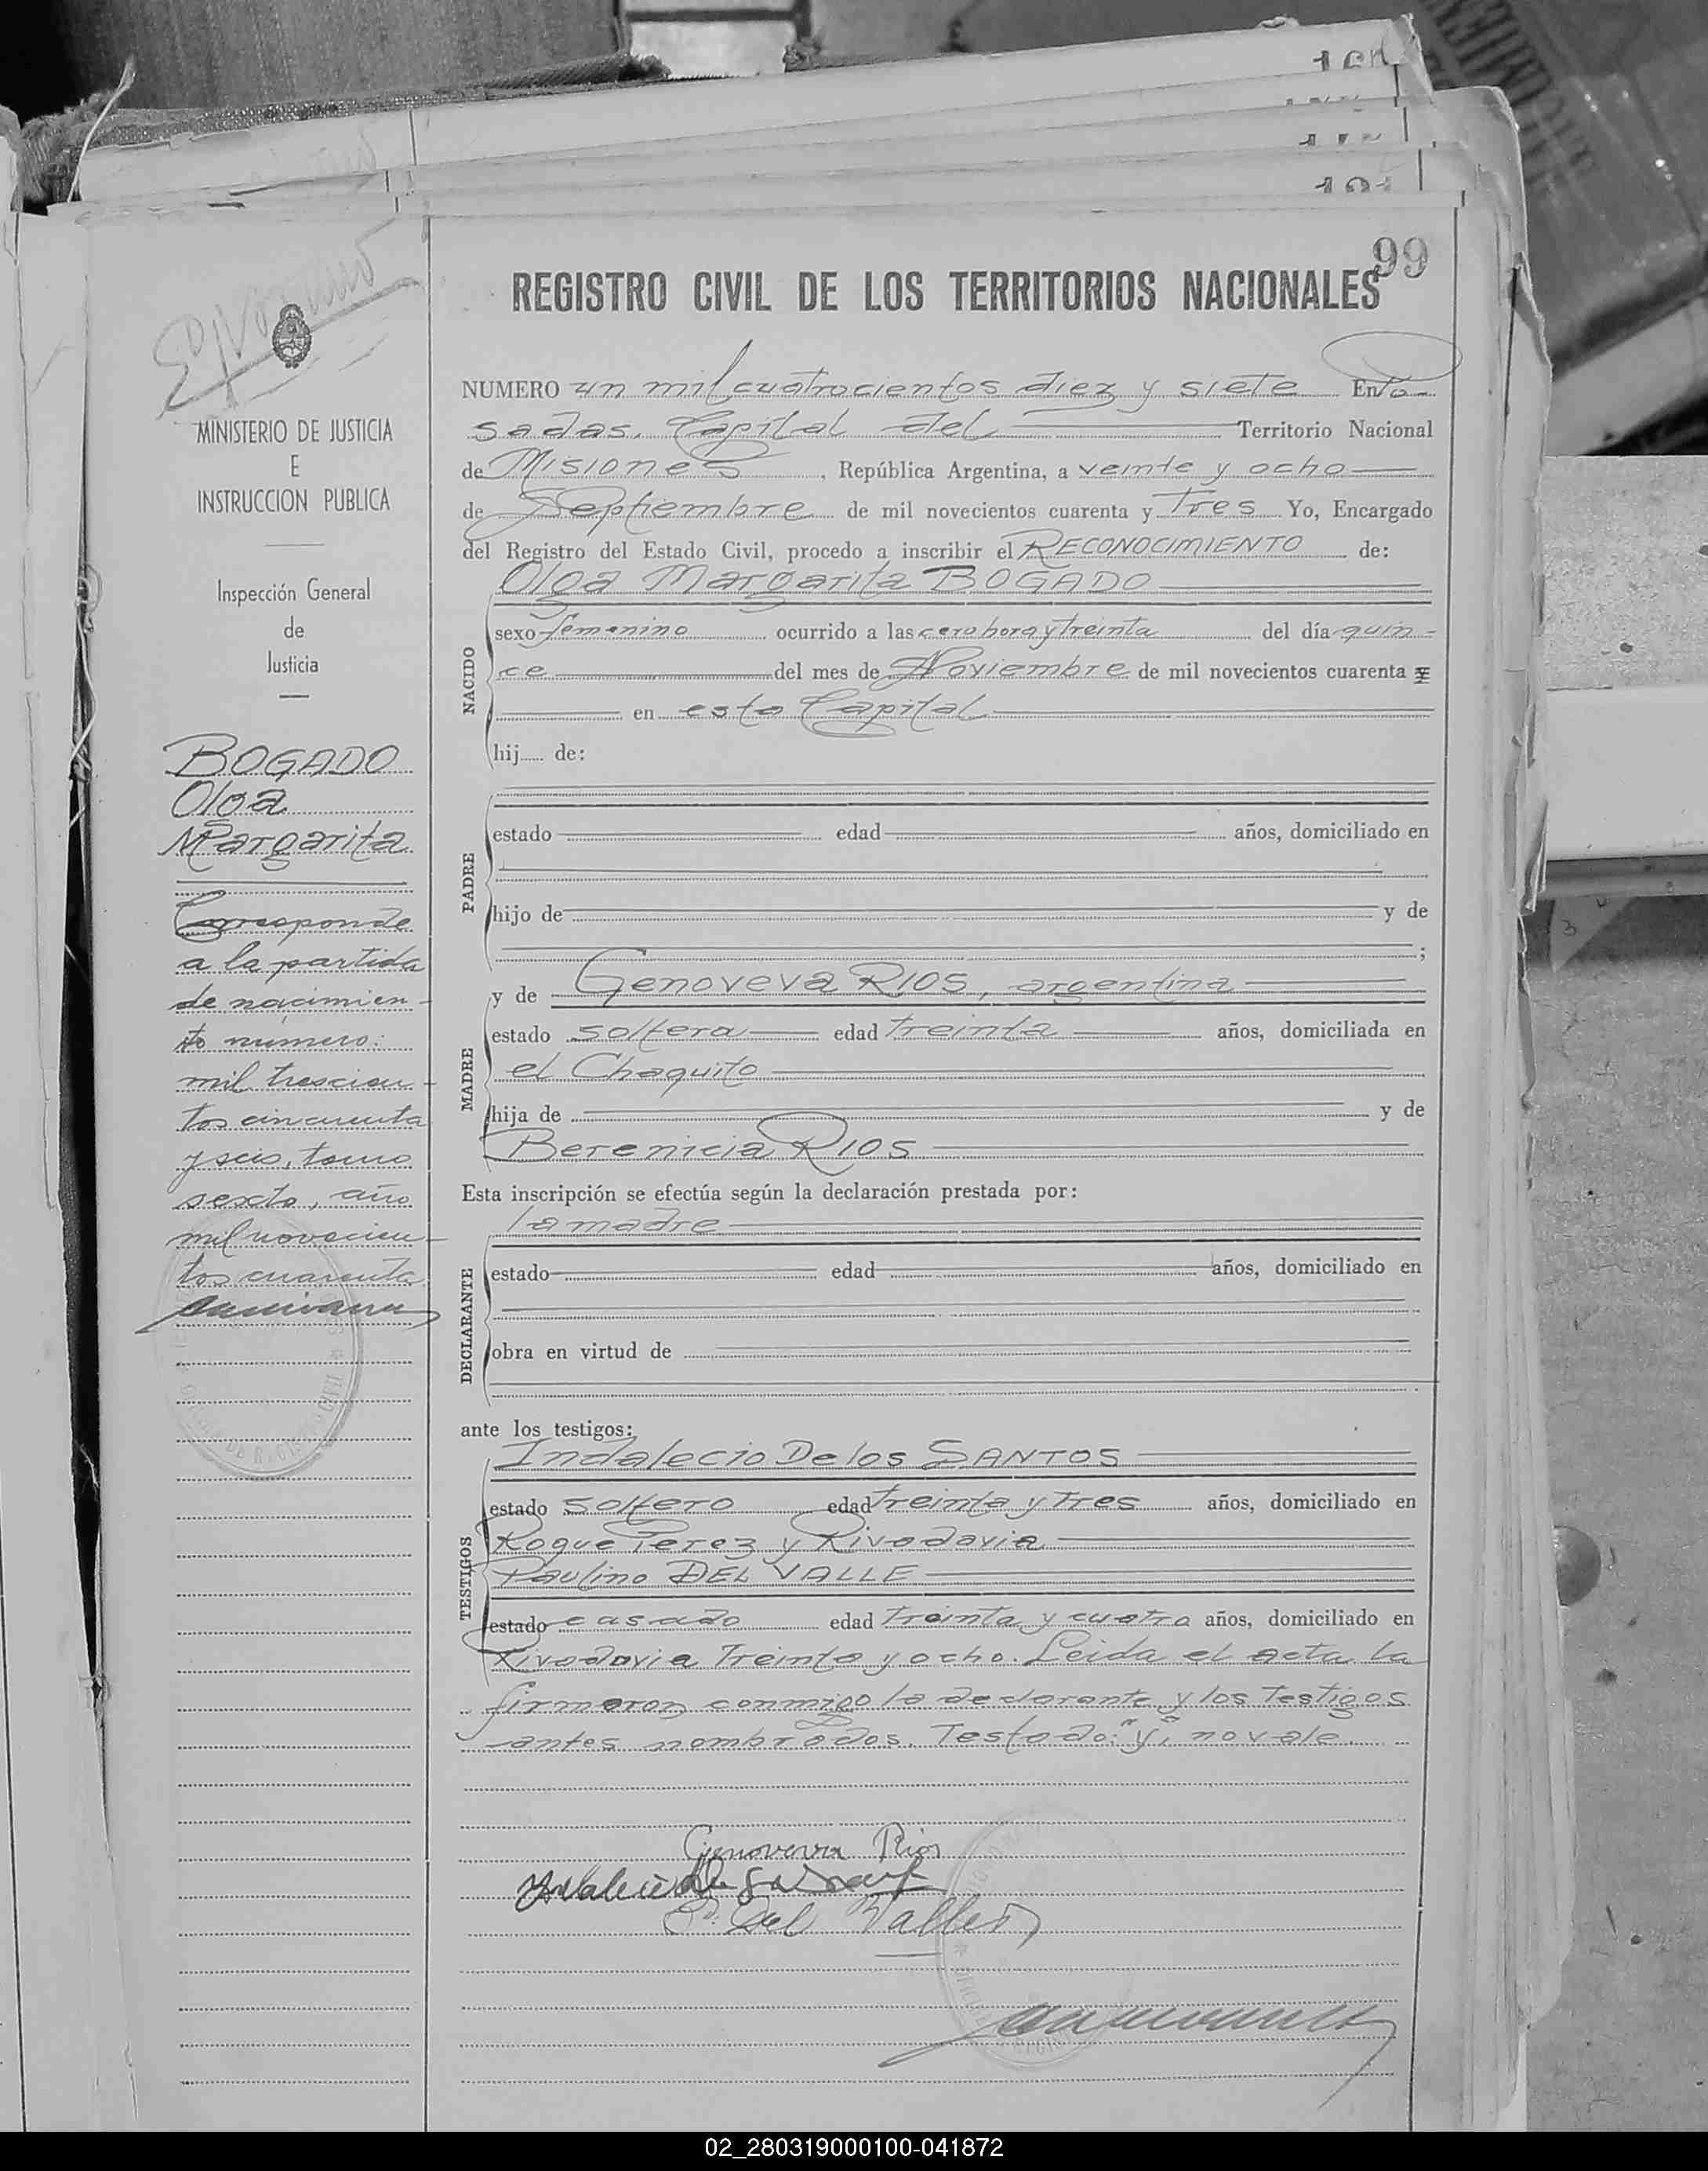 99
REGISTRO CIVIL DE LOS TERRITORIOS NACIONALES
MINISTERIO DE JUSTICIA
E
INSTRUCCION PUBLICA
Inspección General
de
Justicia
BOGADO
Olga
Margarita
Corresponde
a la partida
de nacimien-
to número:
mil trescien-
tos cincuenta
y seis, tomo
sexto, año
mil novecien-
tos cuarenta
NUMERO un mil cuatrocientos diez y siete En Po-
sadas, Capital del Territorio Nacional
de Misiones, República Argentina, a veinte y ocho
de Septiembre de mil novecientos cuarenta y Tres Yo, Encargado
del Registro del Estado Civil, procedo a inscribir el RECONOCIMIENTO de:
NACIDO
Olga Margarita BOGADO
sexo femenino ocurrido a las cero hora y treinta del día quin-
ce del mes de Noviembre de mil novecientos cuarenta y
en esta Capital
hij de:
PADRE
estado edad años, domiciliado en
hijo de y de
;
MADRE
y de Genoveva RIOS, argentina
estado soltera edad treinta años, domiciliada en
el Chaquito
hija de y de
Berenicia RIOS
Esta inscripción se efectúa según la declaración prestada por:
DECLARANTE
la madre
estado edad años, domiciliado en
obra en virtud de
ante los testigos:
TESTIGOS
Indalecio De los SANTOS
estado soltero edad treinta y Tres años, domiciliado en
Roque Perez y Rivadavia
Paulino DEL VALLE
estado casado edad Treinta y cuatro años, domiciliado en
Rivadavia Treinta y ocho. Leida el acta la
firmaron conmigo la declarante y los Testigos
antes nombrados. Testado: "y", no vale.
Genoveva Rios
P. Del Valle
02_280319000100-041872